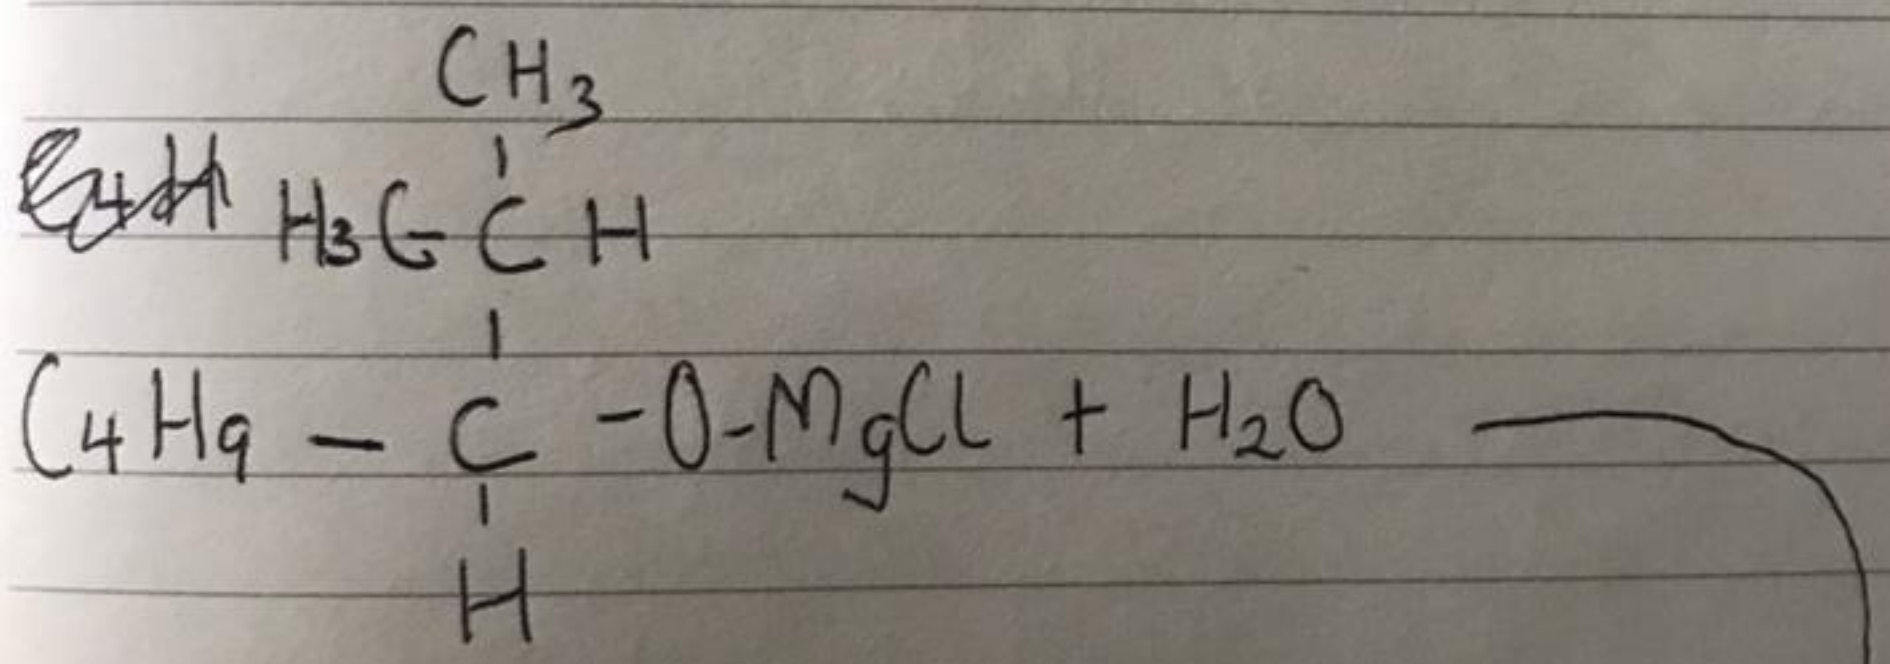 CH3
H3C-CH
C4H9 - C -O-MgCl + H2O
H